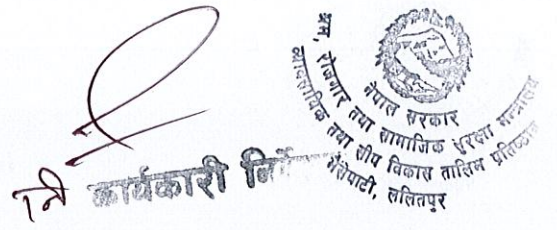 नेपाल सरकार
श्रम, रोजगार तथा सामाजिक सुरक्षा मन्त्रालय
व्यावसायिक तथा सीप विकास तालिम प्रतिष्ठान
भैंसेपाटी, ललितपुर
नि कार्यकारी